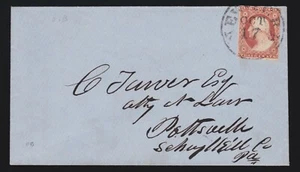 OCT
7
C Tower Esq
atty at Law
Pottsville
Schuylkill Co
Pa